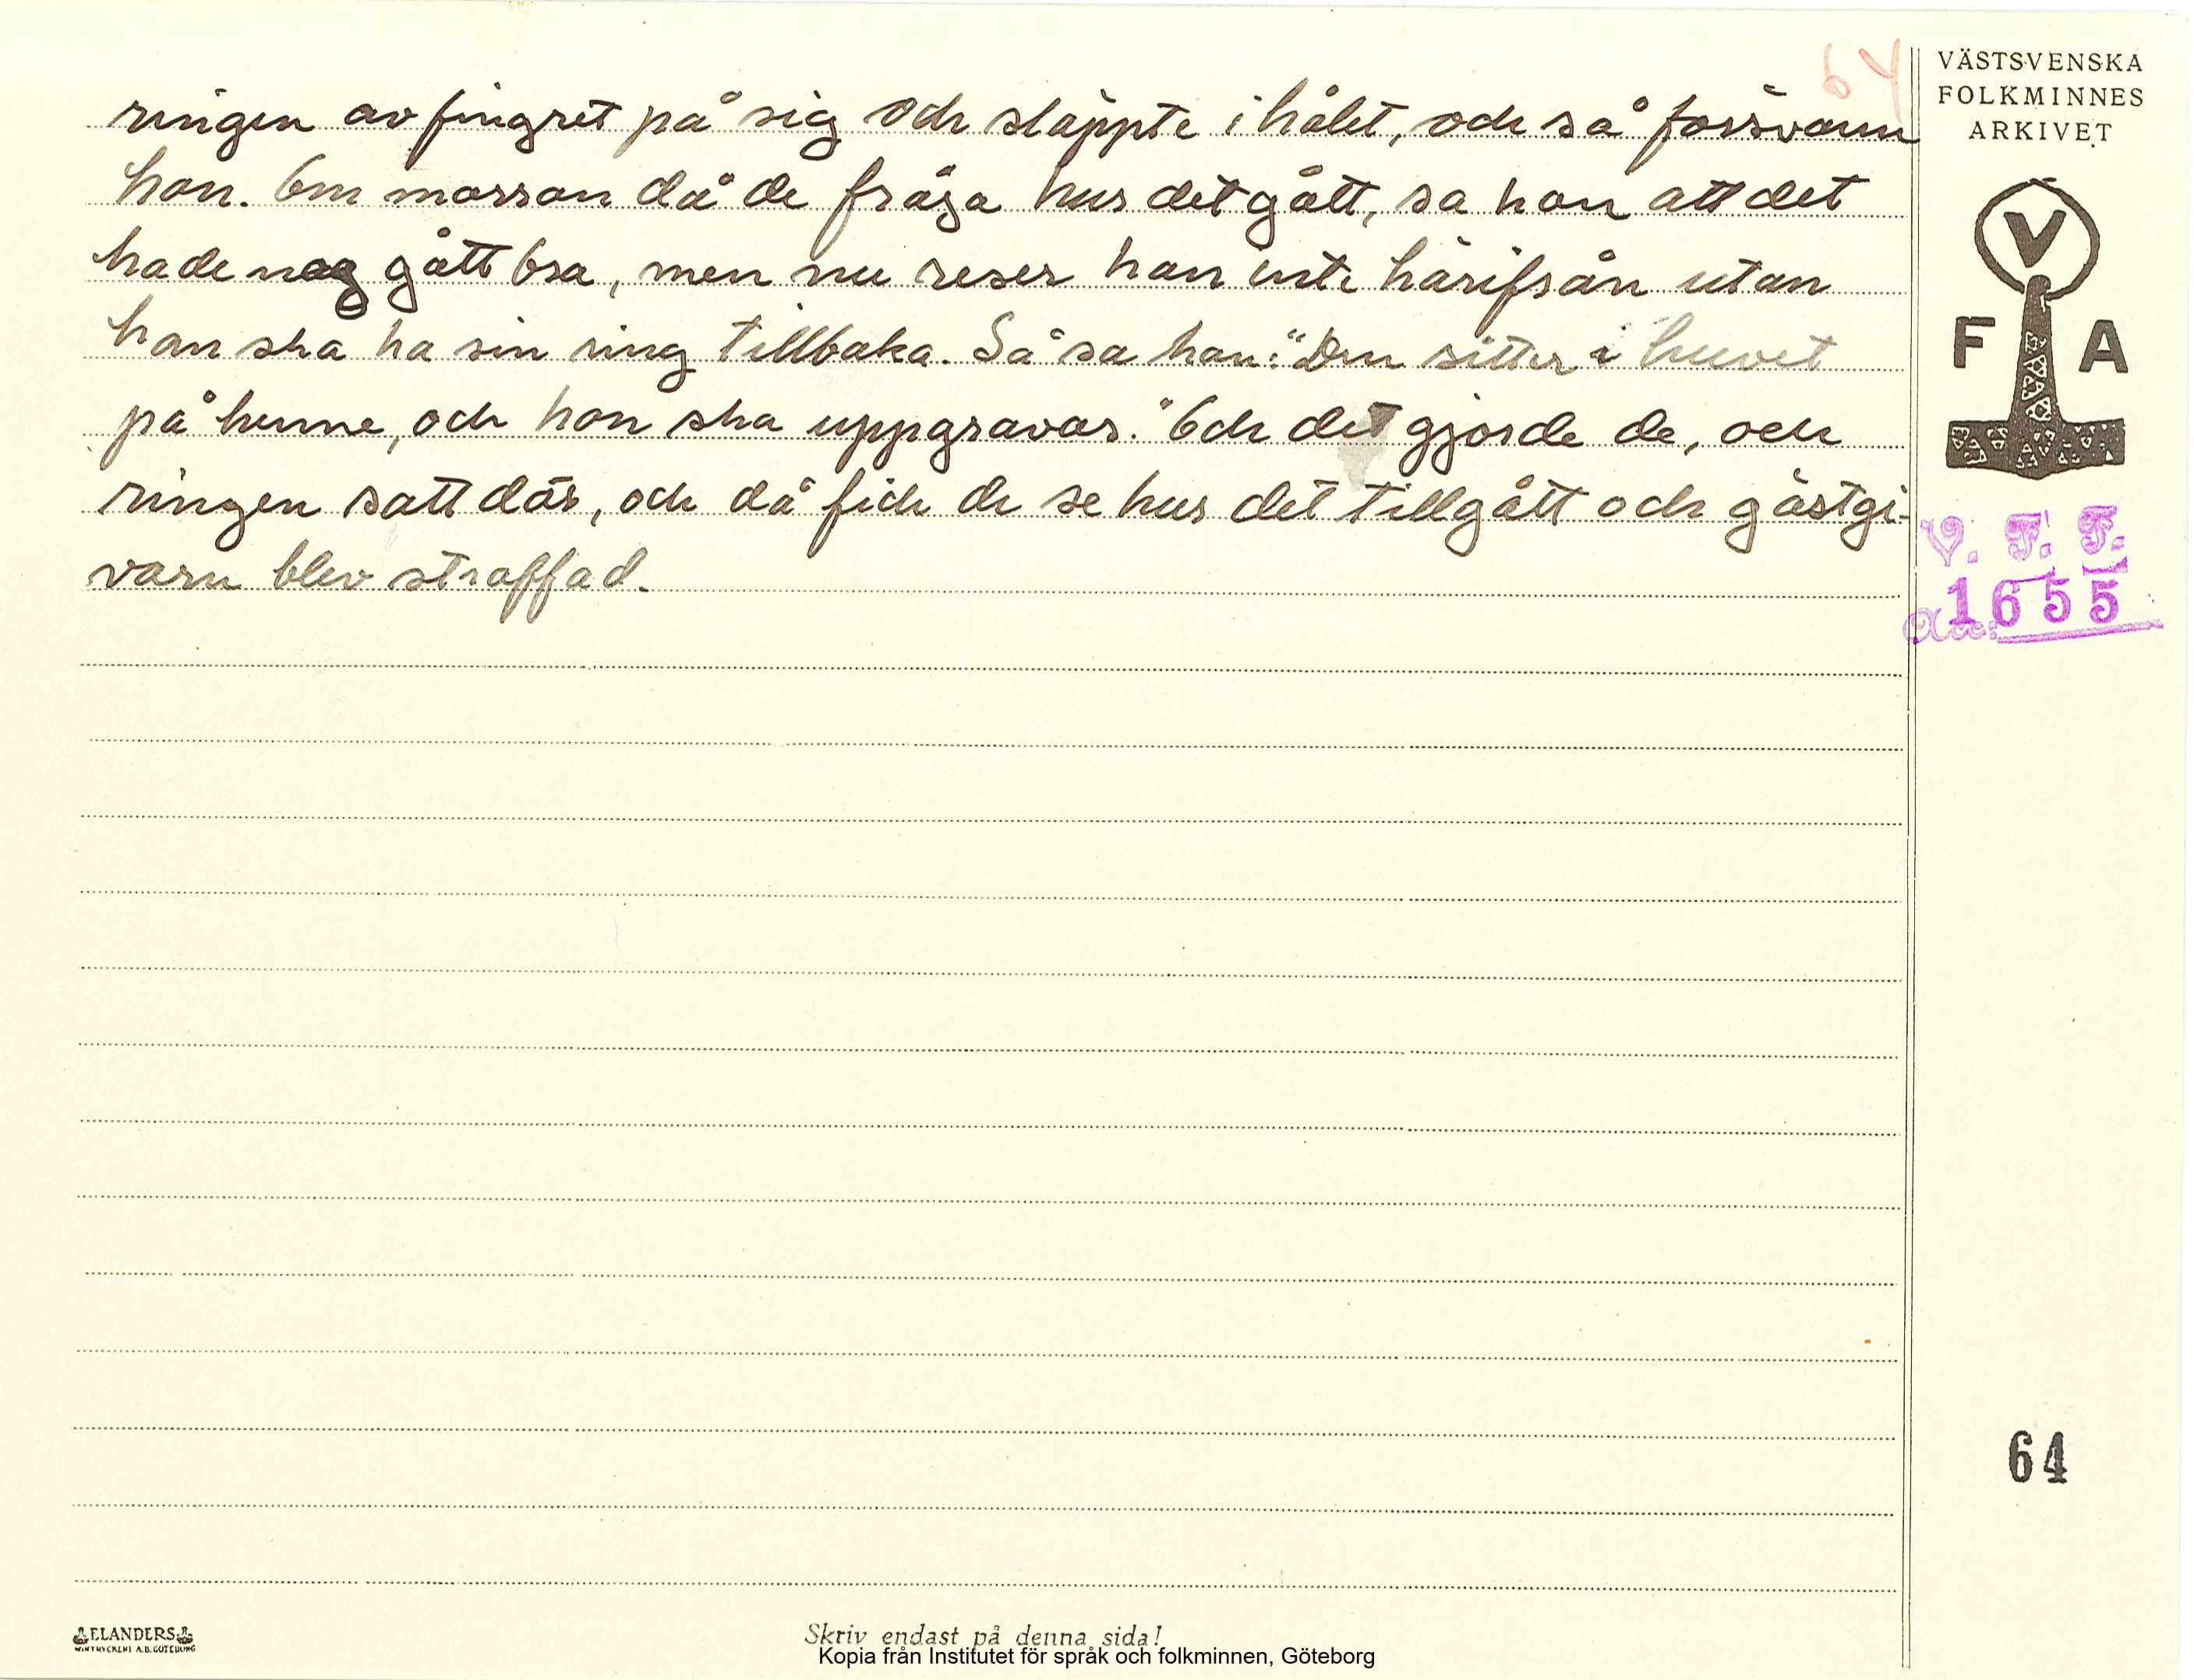 64
ringen av fingret på sig och släppte i hålet, och så försvann
hon. Om morron då de fråga hur det gått, sa han att det
hade nog gått bra, men nu reser han inte härifrån utan
han ska ha sin ring tillbaka. Så sa han: "Den sitter i huvet
på henne, och hon ska uppgravas." Och det gjorde de, och
ringen satt där, och då fick de se hur det tillgått och gästgi-
varn blev straffad.
VÄSTSVENSKA
FOLKMINNES
ARKIVET
V
F A
V. F. F.
1655
64
ELANDERS
Skriv endast på denna sida!
Kopia från Institutet för språk och folkminnen, Göteborg